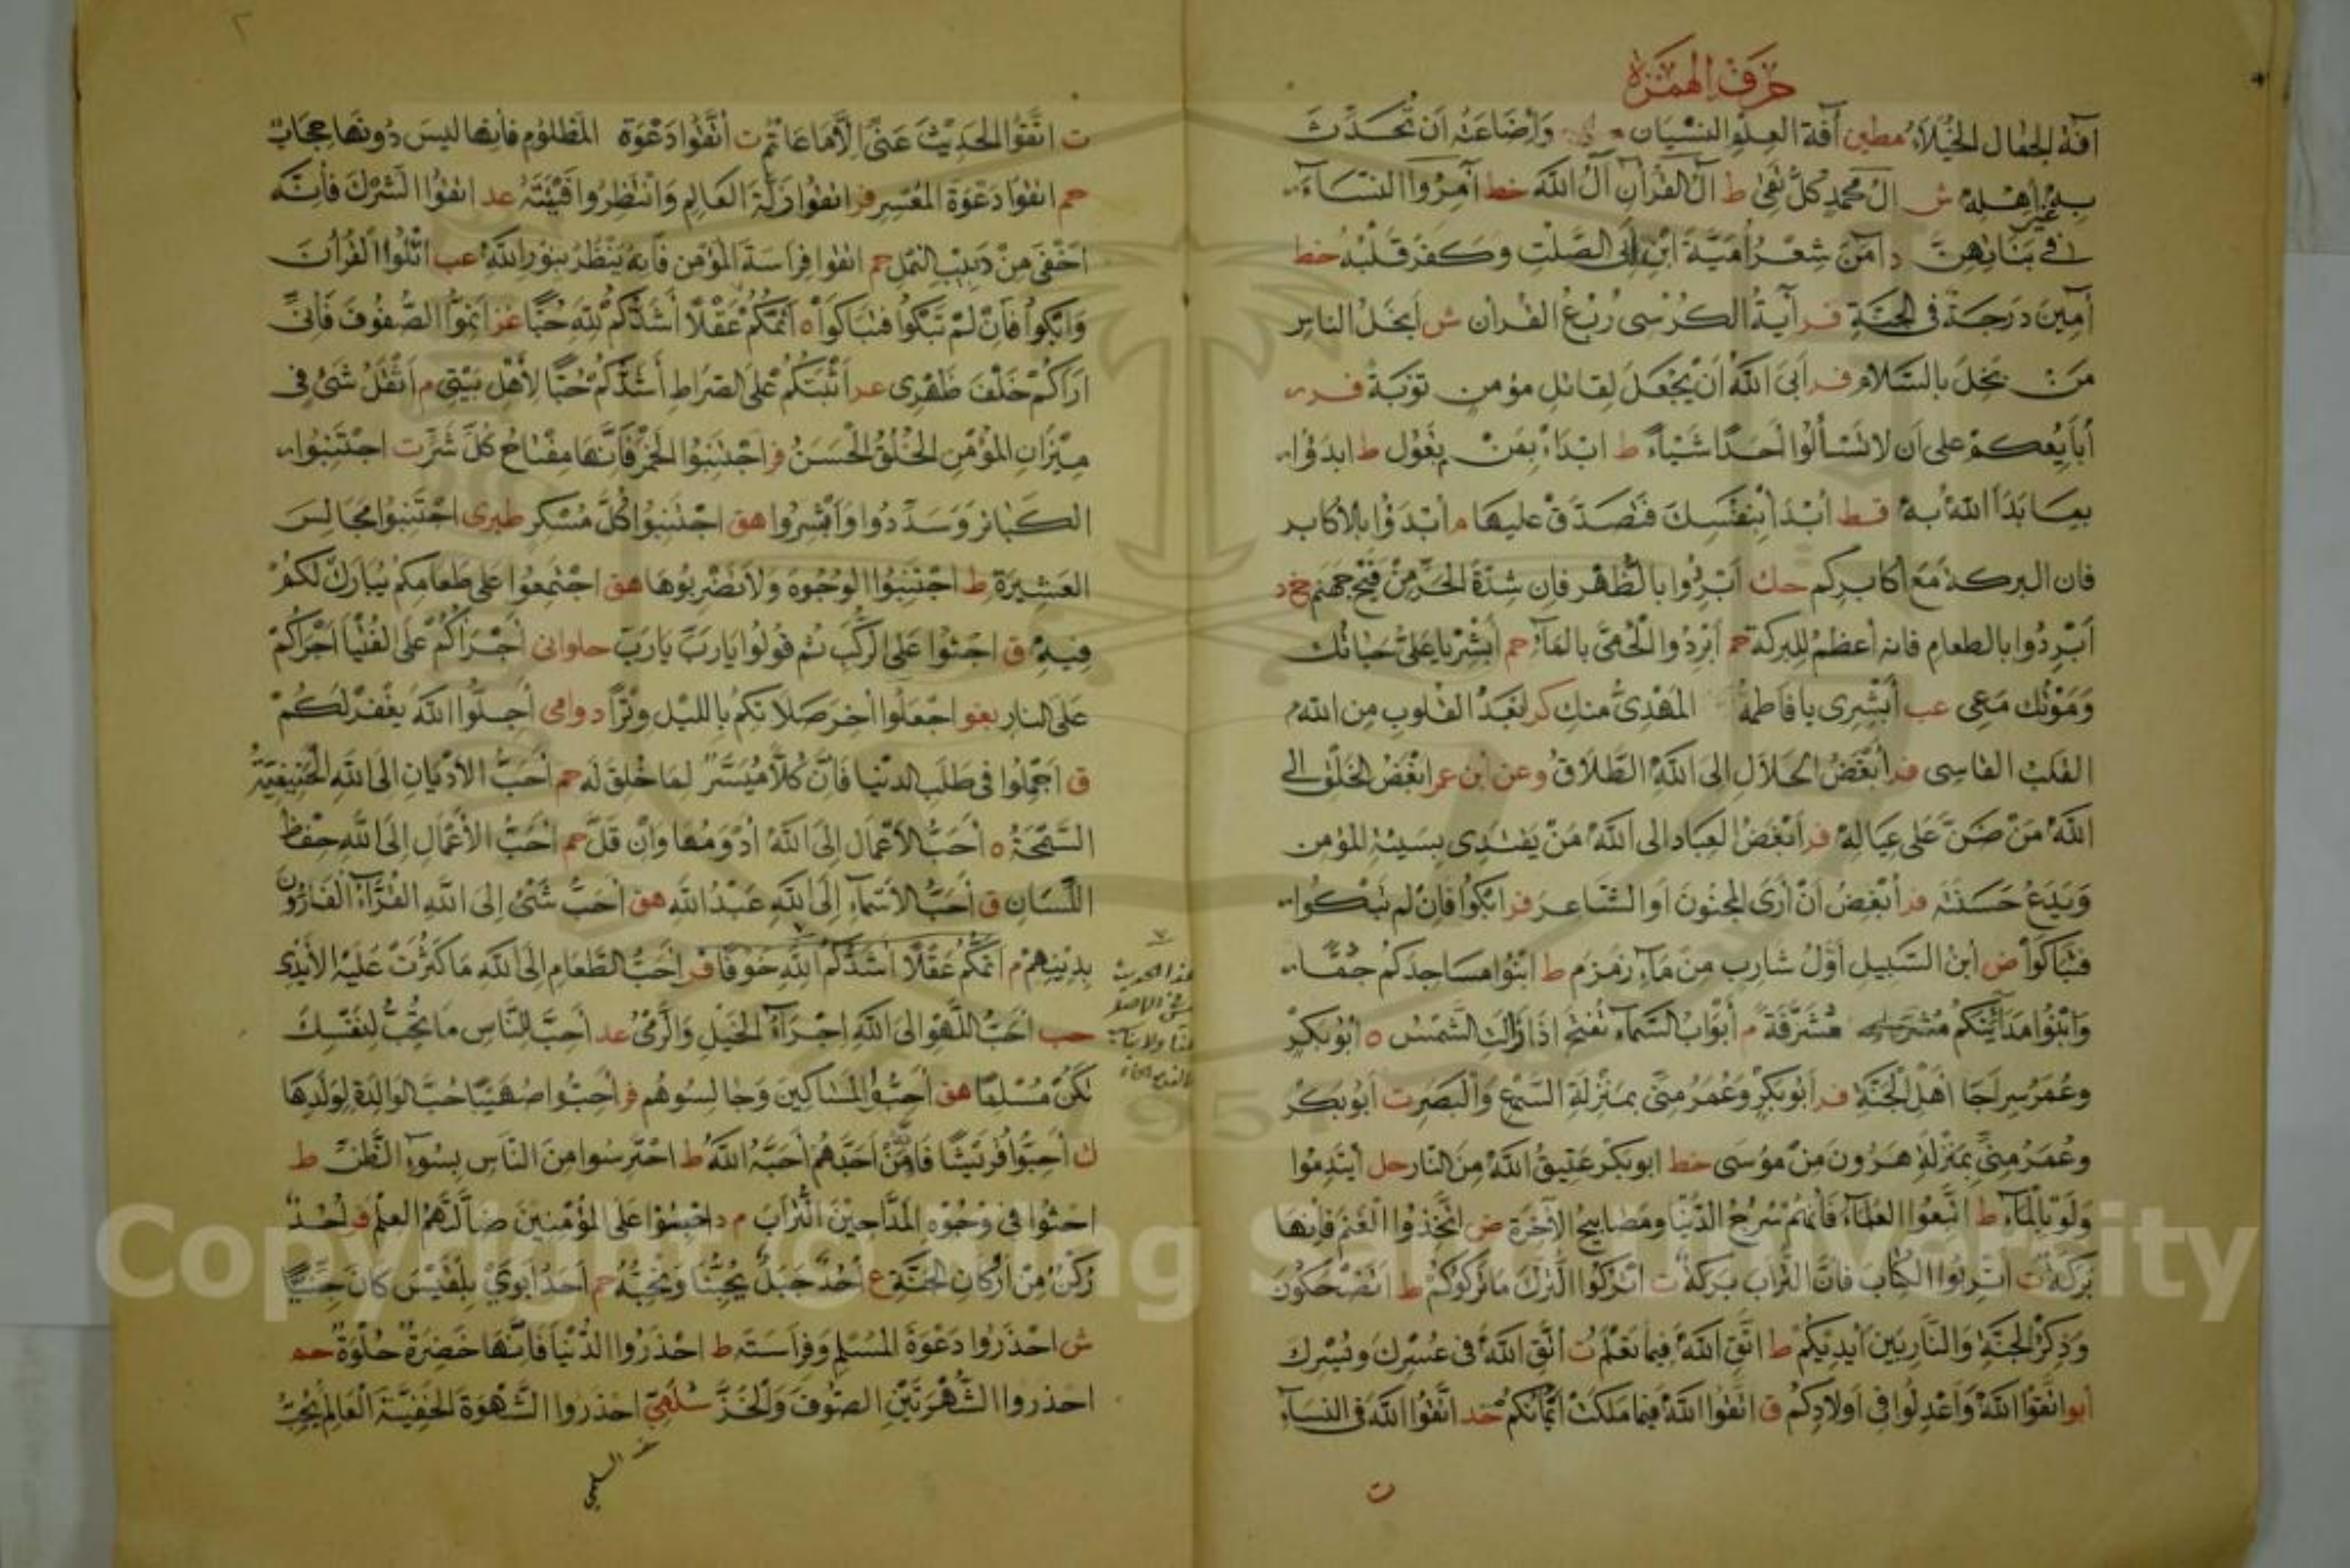 حرف الهمزة
آفة الجمال الخيلاء مطين آفة العلم النسيان وإضاعته أن تحدث
به غير أهله ش آل محمد كل تقي ط آل القرآن آل الله خط آمروا النساء
في بناتهن د آمن شعر أمية ابن أبي الصلت وكفر قلبه خط
آمين درجة في الجنة فر آية الكرسي ربع القرآن ش أبخل الناس
من بخل بالسلام فر أبى الله أن يجعل لقاتل مؤمن توبة فر
أبايعكم على أن لا تسألوا أحدا شيئا ط ابداء بمن يعول ط ابدؤا
بما بدأ الله به قط أبدأ بنفسك فتصدق عليها م أبدؤا بالأكابر
فان البركة مع أكابركم حك أبردوا بالظهر فإن شدة الحر من فيح جهنم خ د
أبردوا بالطعام فانه أعظم للبركة حم أبردوا الحمى بالماء حم أبشر يا علي حياتك
وموتك معي عب أبشري يا فاطمة المهدي منك كر أبعد القلوب من الله
القلب القاسي فر أبغض الحلال إلى الله الطلاق وعن ابن عمر ابغض الخلق الى
الله من ضن على عياله فر أبغض العباد الى الله من يقتدي بسيئة المؤمن
ويدع حسنته فر أبغض أن أرى المجنون أو الشاعر فر ابكوا فإن لم تبكوا
فتباكوا ض ابن السبيل أول شارب من ماء زمزم ط ابنوا مساجدكم جما
وابنوا مدائنكم مشرفة م أبواب السماء تفتح اذا زالت الشمس ه أبو بكر
وعمر سراجا أهل الجنة فر أبو بكر وعمر مني بمنزلة السمع والبصر ت أبو بكر
وعمر مني بمنزلة هرون من موسى خط ابو بكر عتيق الله من النار حل أيتدموا
ولو بالماء ط اتبعوا العلماء فأنهم سرج الدنيا ومصابيح الآخرة ض اتخذوا الغنم فإنها
بركة ت اتربوا الكتاب فان التراب بركة ت اتركوا الترك ما تركوكم ط اتضحكون
وذكر الجنة والنار بين أيديكم ط اتق الله فيما تعلم ت اتق الله في عسرك ويسرك
أبو اتقوا الله وأعدلوا في أولادكم ق اتقوا الله فيما ملكت أيمانكم خد اتقوا الله في النساء
ت
ت اتقوا الحديث عني إلا ما علمتم ت أتقوا دعوة المظلوم فأنها ليس دونها حجاب
حم اتقوا دعوة المعسر فر اتقوا زلة العالم وانتظروا فيئته عد اتقوا الشرك فأنه
اخفى من دبيب النمل حم اتقوا فراسة المؤمن فأنه ينظر بنور الله عب اتلوا القرآن
وابكوا فإن لم تبكوا فتباكوا ه أتمكم عقلا أشدكم لله حبا عز أتموا الصفوف فأني
اراكم خلف ظهري عد أثبتكم على الصراط أشدكم حبا لأهل بيتي م أثقل شئ في
ميزان المؤمن الخلق الحسن فر اجتنبوا الخمر فأنها مفتاح كل شر ت اجتنبوا
الكبائر وسددوا وأبشروا هق اجتنبوا كل مسكر طبرى اجتنبوا مجالس
العشيرة ط اجتنبوا الوجوه ولا تضربوها هق اجتمعوا على طعامكم يبارك لكم
فيه ق اجثوا على الركب ثم قولوا يا رب يا رب حلواني أجرأكم على الفتيا أجرأكم
على النار بغو اجعلوا أخر صلاتكم بالليل وترا د وامى أجلوا الله يغفر لكم
ق اجملوا في طلب الدنيا فان كلا ميسر لما خلق له حم أحب الأديان الى الله الحنيفية
السمحة ه أحب الأعمال إلى الله أدومها وان قل حم أحب الأعمال إلى الله حفظ
اللسان ق أحب الأسماء إلى الله عبد الله هق أحب شئ إلى الله القراء الفارون
بدينهم م اتمكم عقلا اشدكم لله خوفا فر احب الطعام إلى الله ما كثرت عليه الأيدي
حب احب اللهو الى الله اجراء الخيل والرمي عد أحب للناس ما تحب لنفسك
تكن مسلما هق أحبوا المساكين وجالسوهم فر أحبوا صهيبا حب الوالدة لولدها
ك أحبوا قريشا فأنه من أحبهم أحبه الله ط احترسوا من الناس بسوء الظن ط
احثوا في وجوه المداحين التراب م د احبسوا على المؤمنين ضالتهم العلم فر أحد
ركن من أركان الجنة ع أحد جبل يحبنا ونحبه حم أحد أبوي بلقيس كان جنيا
ش احذروا دعوة المسلم وفراسته ط احذروا الدنيا فإنها خضرة حلوة حم
احذروا الشهرتين الصوف والخز سلمي احذروا الشهوة الخفية العالم يحب
هذا الحديث
السلمي
Copyright © King Saud University
1957